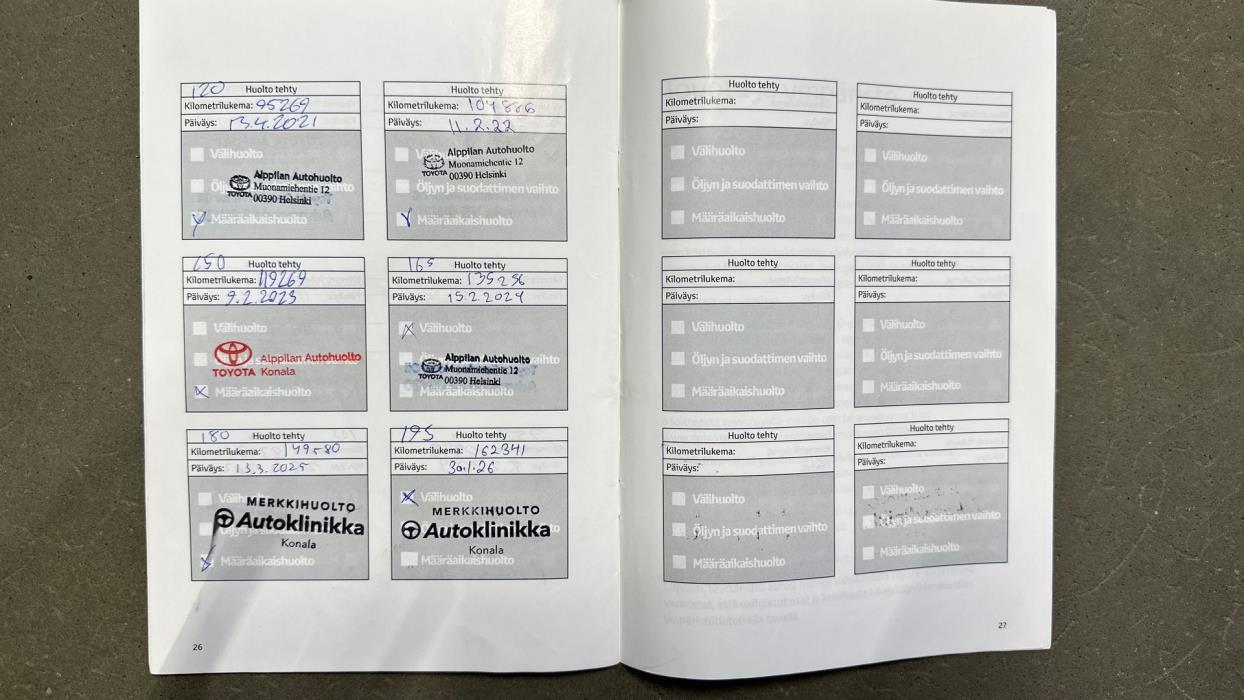 120 Huolto tehty
Kilometrilukema: 95269
Päiväys: 13.4.2021
Välihuolto
Alppilan Autohuolto
Muonamiehentie 12
TOYOTA 00390 Helsinki
Määräaikaishuolto
Huolto tehty
Kilometrilukema: 104886
Päiväys: 11.2.22
Alppilan Autohuolto
Muonamiehentie 12
TOYOTA 00390 Helsinki
Öljyn ja suodattimen vaihto
Määräaikaishuolto
150 Huolto tehty
Kilometrilukema: 119269
Päiväys: 9.2.2023
Välihuolto
Alppilan Autohuolto
TOYOTA Konala
Määräaikaishuolto
165 Huolto tehty
Kilometrilukema: 135256
Päiväys: 15.2.2024
Välihuolto
Alppilan Autohuolto
Muonamiehentie 12
TOYOTA 00390 Helsinki
Määräaikaishuolto
180 Huolto tehty
Kilometrilukema:
Päiväys: 13.3.2025
Välihuolto
MERKKIHUOLTO
Autoklinikka
Konala
Määräaikaishuolto
195 Huolto tehty
Kilometrilukema: 162341
Päiväys: 30.1.26
Välihuolto
MERKKIHUOLTO
Autoklinikka
Konala
Määräaikaishuolto
26
Huolto tehty
Kilometrilukema:
Päiväys:
Välihuolto
Öljyn ja suodattimen vaihto
Määräaikaishuolto
Huolto tehty
Kilometrilukema:
Päiväys:
Välihuolto
Öljyn ja suodattimen vaihto
Määräaikaishuolto
Huolto tehty
Kilometrilukema:
Päiväys:
Välihuolto
Öljyn ja suodattimen vaihto
Määräaikaishuolto
Huolto tehty
Kilometrilukema:
Päiväys:
Välihuolto
Öljyn ja suodattimen vaihto
Määräaikaishuolto
Huolto tehty
Kilometrilukema:
Päiväys:
Välihuolto
Öljyn ja suodattimen vaihto
Määräaikaishuolto
Huolto tehty
Kilometrilukema:
Päiväys:
Välihuolto
Öljyn ja suodattimen vaihto
Määräaikaishuolto
27